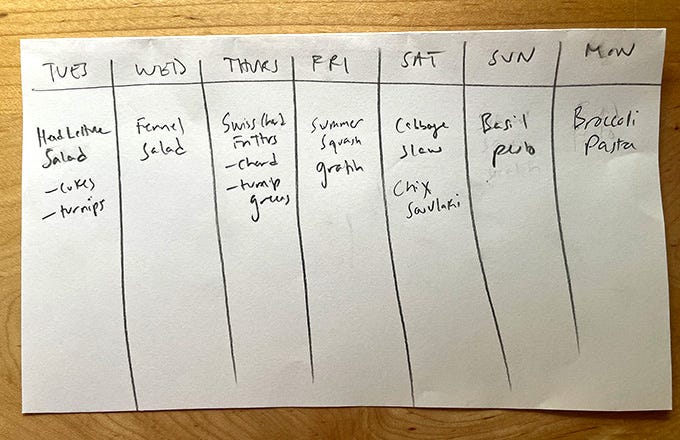 TUES
WED
THURS
FRI
SAT
SUN
MON
Head Lettuce
Salad
- cukes
- turnips
Fennel
Salad
Swiss Chard
Fritters
- chard
- turnip
greens
Summer
Squash
gratin
Cabbage
slaw
Chix
Souvlaki
Basil
Broccoli
Pasta